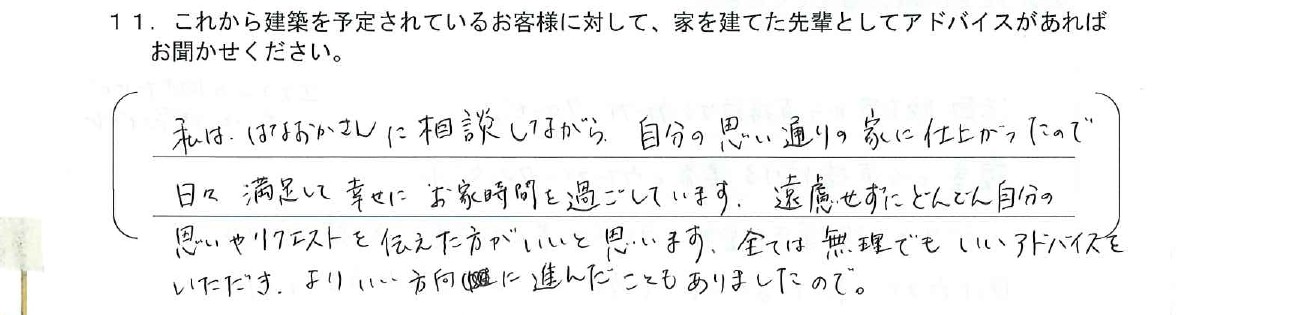 １１．これから建築を予定されているお客様に対して、家を建てた先輩としてアドバイスがあれば
お聞かせください。
私は、はなおかさんに相談しながら、自分の思い通りの家に仕上がったので
日々満足して幸せにお家時間を過ごしています。遠慮せずにどんどん自分の
思いやリクエストを伝えた方がいいと思います。全ては無理でもいいアドバイスを
いただき、よりいい方向に進んだこともありましたので。